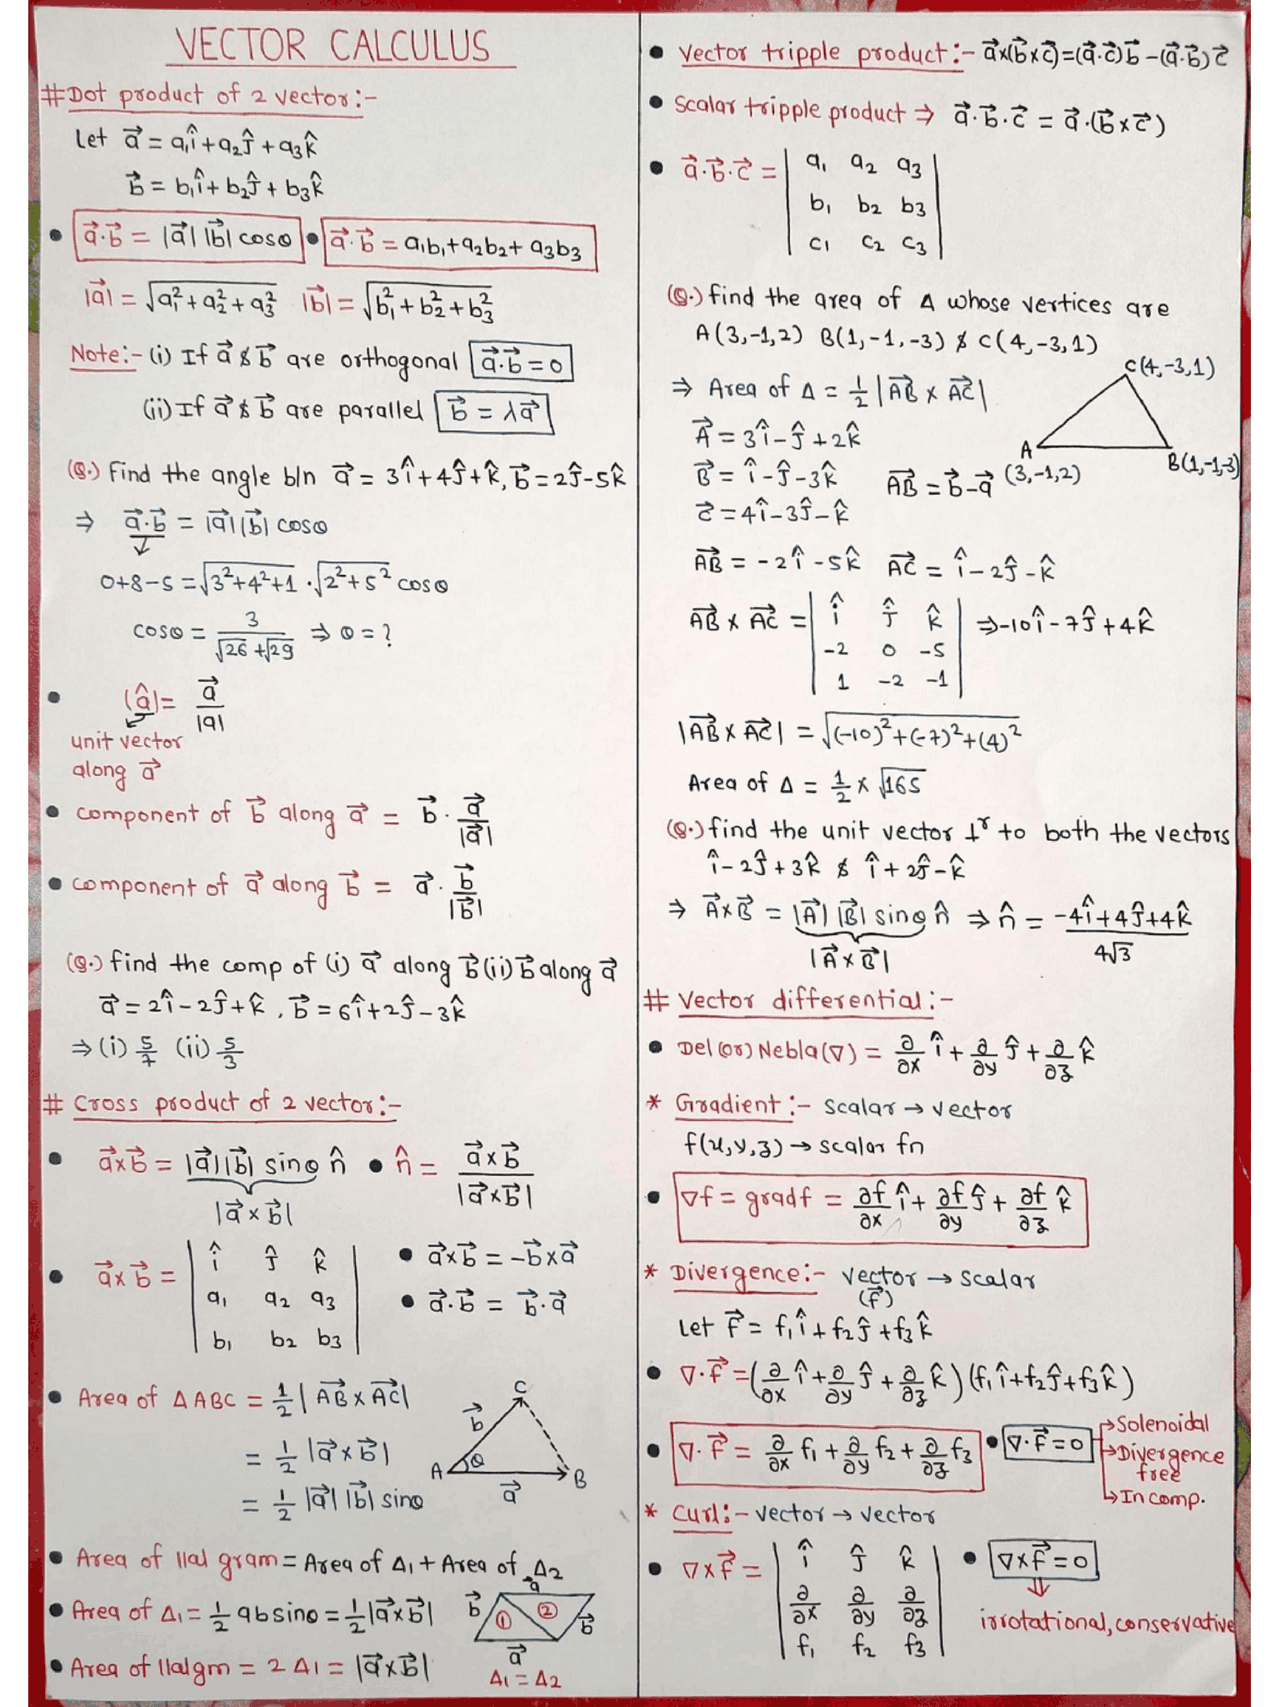 VECTOR CALCULUS
#Dot product of 2 vector:-
Let a⃗ = a₁î+a₂ĵ+a₃k̂
b⃗ = b₁î+b₂ĵ+b₃k̂
• a⃗.b⃗ = |a⃗| |b⃗| cosθ • a⃗.b⃗ = a₁b₁+a₂b₂+a₃b₃
|a⃗| = √(a₁²+a₂²+a₃²) |b⃗| = √(b₁²+b₂²+b₃²)
Note:- (i) If a⃗ & b⃗ are orthogonal a⃗.b⃗=0
(ii) If a⃗ & b⃗ are parallel b⃗ = λa⃗
(Q.) Find the angle b/n a⃗ = 3î+4ĵ+k̂, b⃗=2ĵ-5k̂
⇒ a⃗.b⃗ = |a⃗||b⃗| cosθ
0+8-5 = √(3²+4²+1) . √(2²+5²) cosθ
cosθ = 3/(√26 + √29) ⇒ θ = ?
• (â)= a⃗/|a|
unit vector
along a⃗
• component of b⃗ along a⃗ = b⃗ . a⃗/|a⃗|
• component of a⃗ along b⃗ = a⃗ . b⃗/|b⃗|
(Q.) find the comp of (i) a⃗ along b⃗ (ii) b⃗ along a⃗
a⃗ = 2î-2ĵ+k̂ , b⃗ = 6î+2ĵ-3k̂
⇒ (i) 5/7 (ii) 5/3
# Cross product of 2 vector:-
• a⃗×b⃗ = |a⃗||b⃗| sinθ n̂ • n̂ = a⃗×b⃗/|a⃗×b⃗|
|a⃗×b⃗|
• a⃗×b⃗ = | î ĵ k̂ | • a⃗×b⃗ = -b⃗×a⃗
| a₁ a₂ a₃ | • a⃗.b⃗ = b⃗.a⃗
| b₁ b₂ b₃ |
• Area of ΔABC = 1/2 | AB⃗ × AC⃗|
= 1/2 |a⃗×b⃗|
= 1/2 |a⃗| |b⃗| sinθ
C
b⃗
A θ
B
a⃗
• Area of llal gram = Area of Δ₁ + Area of Δ₂
• Area of Δ₁ = 1/2 ab sinθ = 1/2 |a⃗×b⃗|
• Area of llalgm = 2 Δ₁ = |a⃗×b⃗|
a⃗
b⃗ ① ② b⃗
a⃗
Δ₁ = Δ₂
• Vector tripple product:- a⃗×(b⃗×c⃗)=(a⃗.c⃗)b⃗-(a⃗.b⃗)c⃗
• Scalar tripple product ⇒ a⃗.b⃗.c⃗ = a⃗.(b⃗×c⃗)
• a⃗.b⃗.c⃗ = | a₁ a₂ a₃ |
| b₁ b₂ b₃ |
| c₁ c₂ c₃ |
(Q.) find the area of Δ whose vertices are
A(3,-1,2) B(1,-1,-3) & C(4,-3,1)
⇒ Area of Δ = 1/2 |AB⃗ × AC⃗|
A⃗ = 3î-ĵ+2k̂
B⃗ = î-ĵ-3k̂ AB⃗ = b⃗-a⃗
c⃗ = 4î-3ĵ-k̂
C(4,-3,1)
A
(3,-1,2)
B(1,-1,-3)
AB⃗ = -2î-5k̂ AC⃗ = î-2ĵ-k̂
AB⃗ × AC⃗ = | î ĵ k̂ | ⇒ -10î-7ĵ+4k̂
| -2 0 -5 |
| 1 -2 -1 |
|AB⃗ × AC⃗| = √((-10)²+(-7)²+(4)²)
Area of Δ = 1/2 × √165
(Q.) find the unit vector ⊥ʳ to both the vectors
î-2ĵ+3k̂ & î+2ĵ-k̂
⇒ A⃗×B⃗ = |A⃗| |B⃗| sinθ n̂ ⇒ n̂ = (-4î+4ĵ+4k̂)/4√3
|A⃗×B⃗|
# Vector differential:-
• Del (or) Nebla(∇) = ∂/∂x î + ∂/∂y ĵ + ∂/∂z k̂
* Gradient:- scalar → vector
f(x,y,z) → scalar fn
• ∇f = grad f = ∂f/∂x î + ∂f/∂y ĵ + ∂f/∂z k̂
* Divergence:- vector → scalar
(f⃗)
Let F⃗ = f₁î+f₂ĵ+f₃k̂
• ∇.F⃗ = (∂/∂x î + ∂/∂y ĵ + ∂/∂z k̂) (f₁î+f₂ĵ+f₃k̂)
• ∇.F⃗ = ∂/∂x f₁ + ∂/∂y f₂ + ∂/∂z f₃ • ∇.F⃗=0
→Solenoidal
→Divergence
free
→Incomp.
* Curl:- vector → vector
• ∇×F⃗ = | î ĵ k̂ | • ∇×F⃗=0
| ∂/∂x ∂/∂y ∂/∂z |
| f₁ f₂ f₃ |
irrotational, conservative